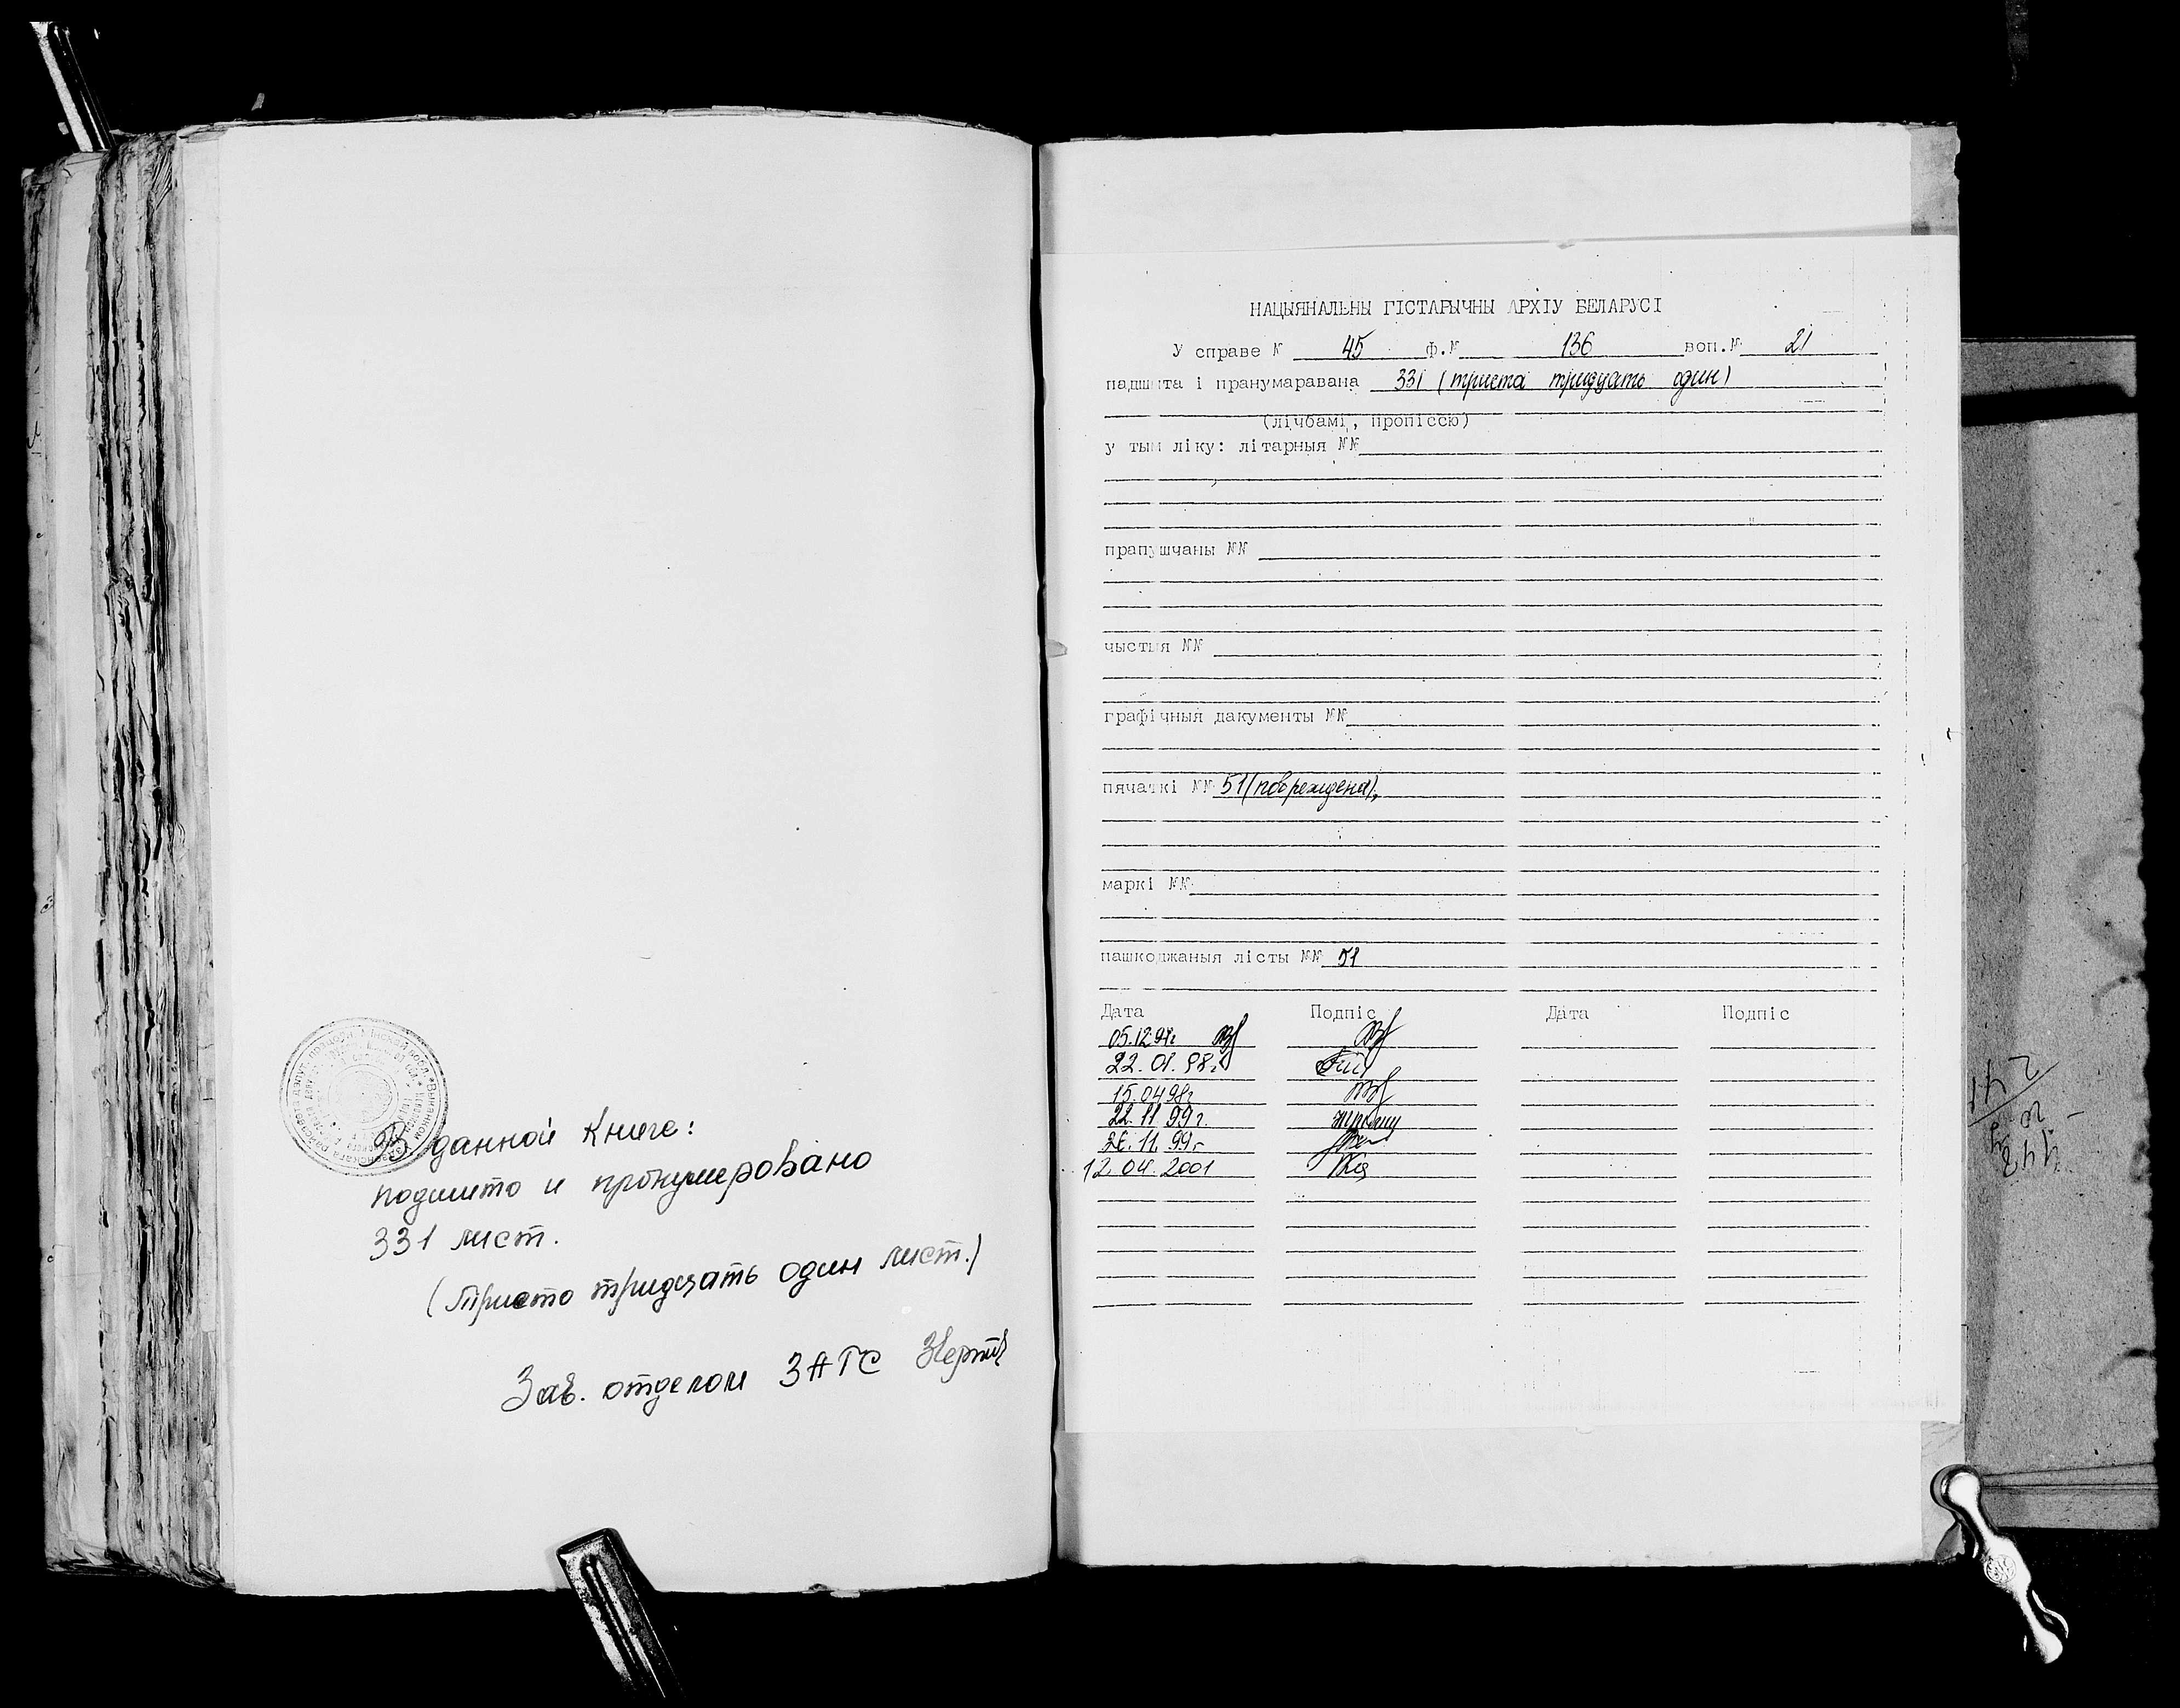 В данной книге:
подшито и пронумеровано
331 лист.
(Триста тридцать один лист.)
Зав. отделом ЗАГС
НАЦЫЯНАЛЬНЫ ГІСТАРЫЧНЫ АРХІУ БЕЛАРУСІ
У справе № 45 ф.№ 136 воп.№ 21
падшыта і пранумаравана 331 (триста тридцать один)
(лічбамі, пропіссю)
у тым ліку: літарныя №№
прапушчаны №№
чыстыя №№
графічныя дакументы №№
пячаткі №№ 51 (повреждена),
маркі №№
пашкоджаныя лісты №№ 51
Дата Подпіс Дата Подпіс
05.12.97г
22.01.98г
15.04.98г
22.11.99г.
26.11.99г
12.04.2001